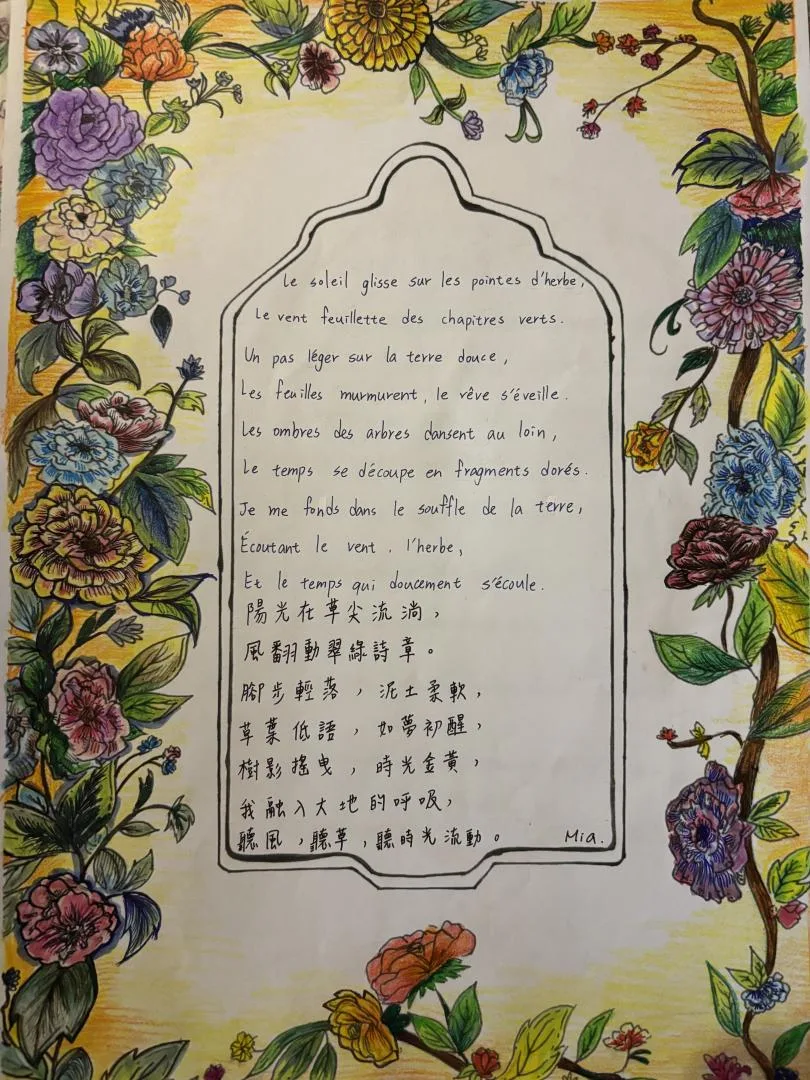 Le soleil glisse sur les pointes d'herbe,
Le vent feuillette des chapitres verts.
Un pas léger sur la terre douce,
Les feuilles murmurent, le rêve s'éveille.
Les ombres des arbres dansent au loin,
Le temps se découpe en fragments dorés.
Je me fonds dans le souffle de la terre,
Écoutant le vent. l'herbe,
Et le temps qui doucement s'écoule.
陽光在草尖流淌，
風翻動翠綠詩章。
腳步輕落，泥土柔軟，
草葉低語，如夢初醒，
樹影搖曳，時光金黃，
我融入大地的呼吸，
聽風，聽草，聽時光流動。 Mia.